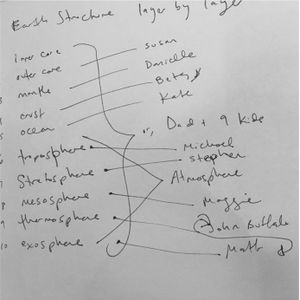 Earth Structure layer by layer
inner core
susan
outer core
Danielle
mantle
Betsy
crust
Kate
ocean
Dad + 9 kids
6 troposphere
Michael
stephen
7 Stratosphere
Atmosphere
8 mesosphere
Maggie
9 thermosphere
John Buffalo
10 exosphere
Matt